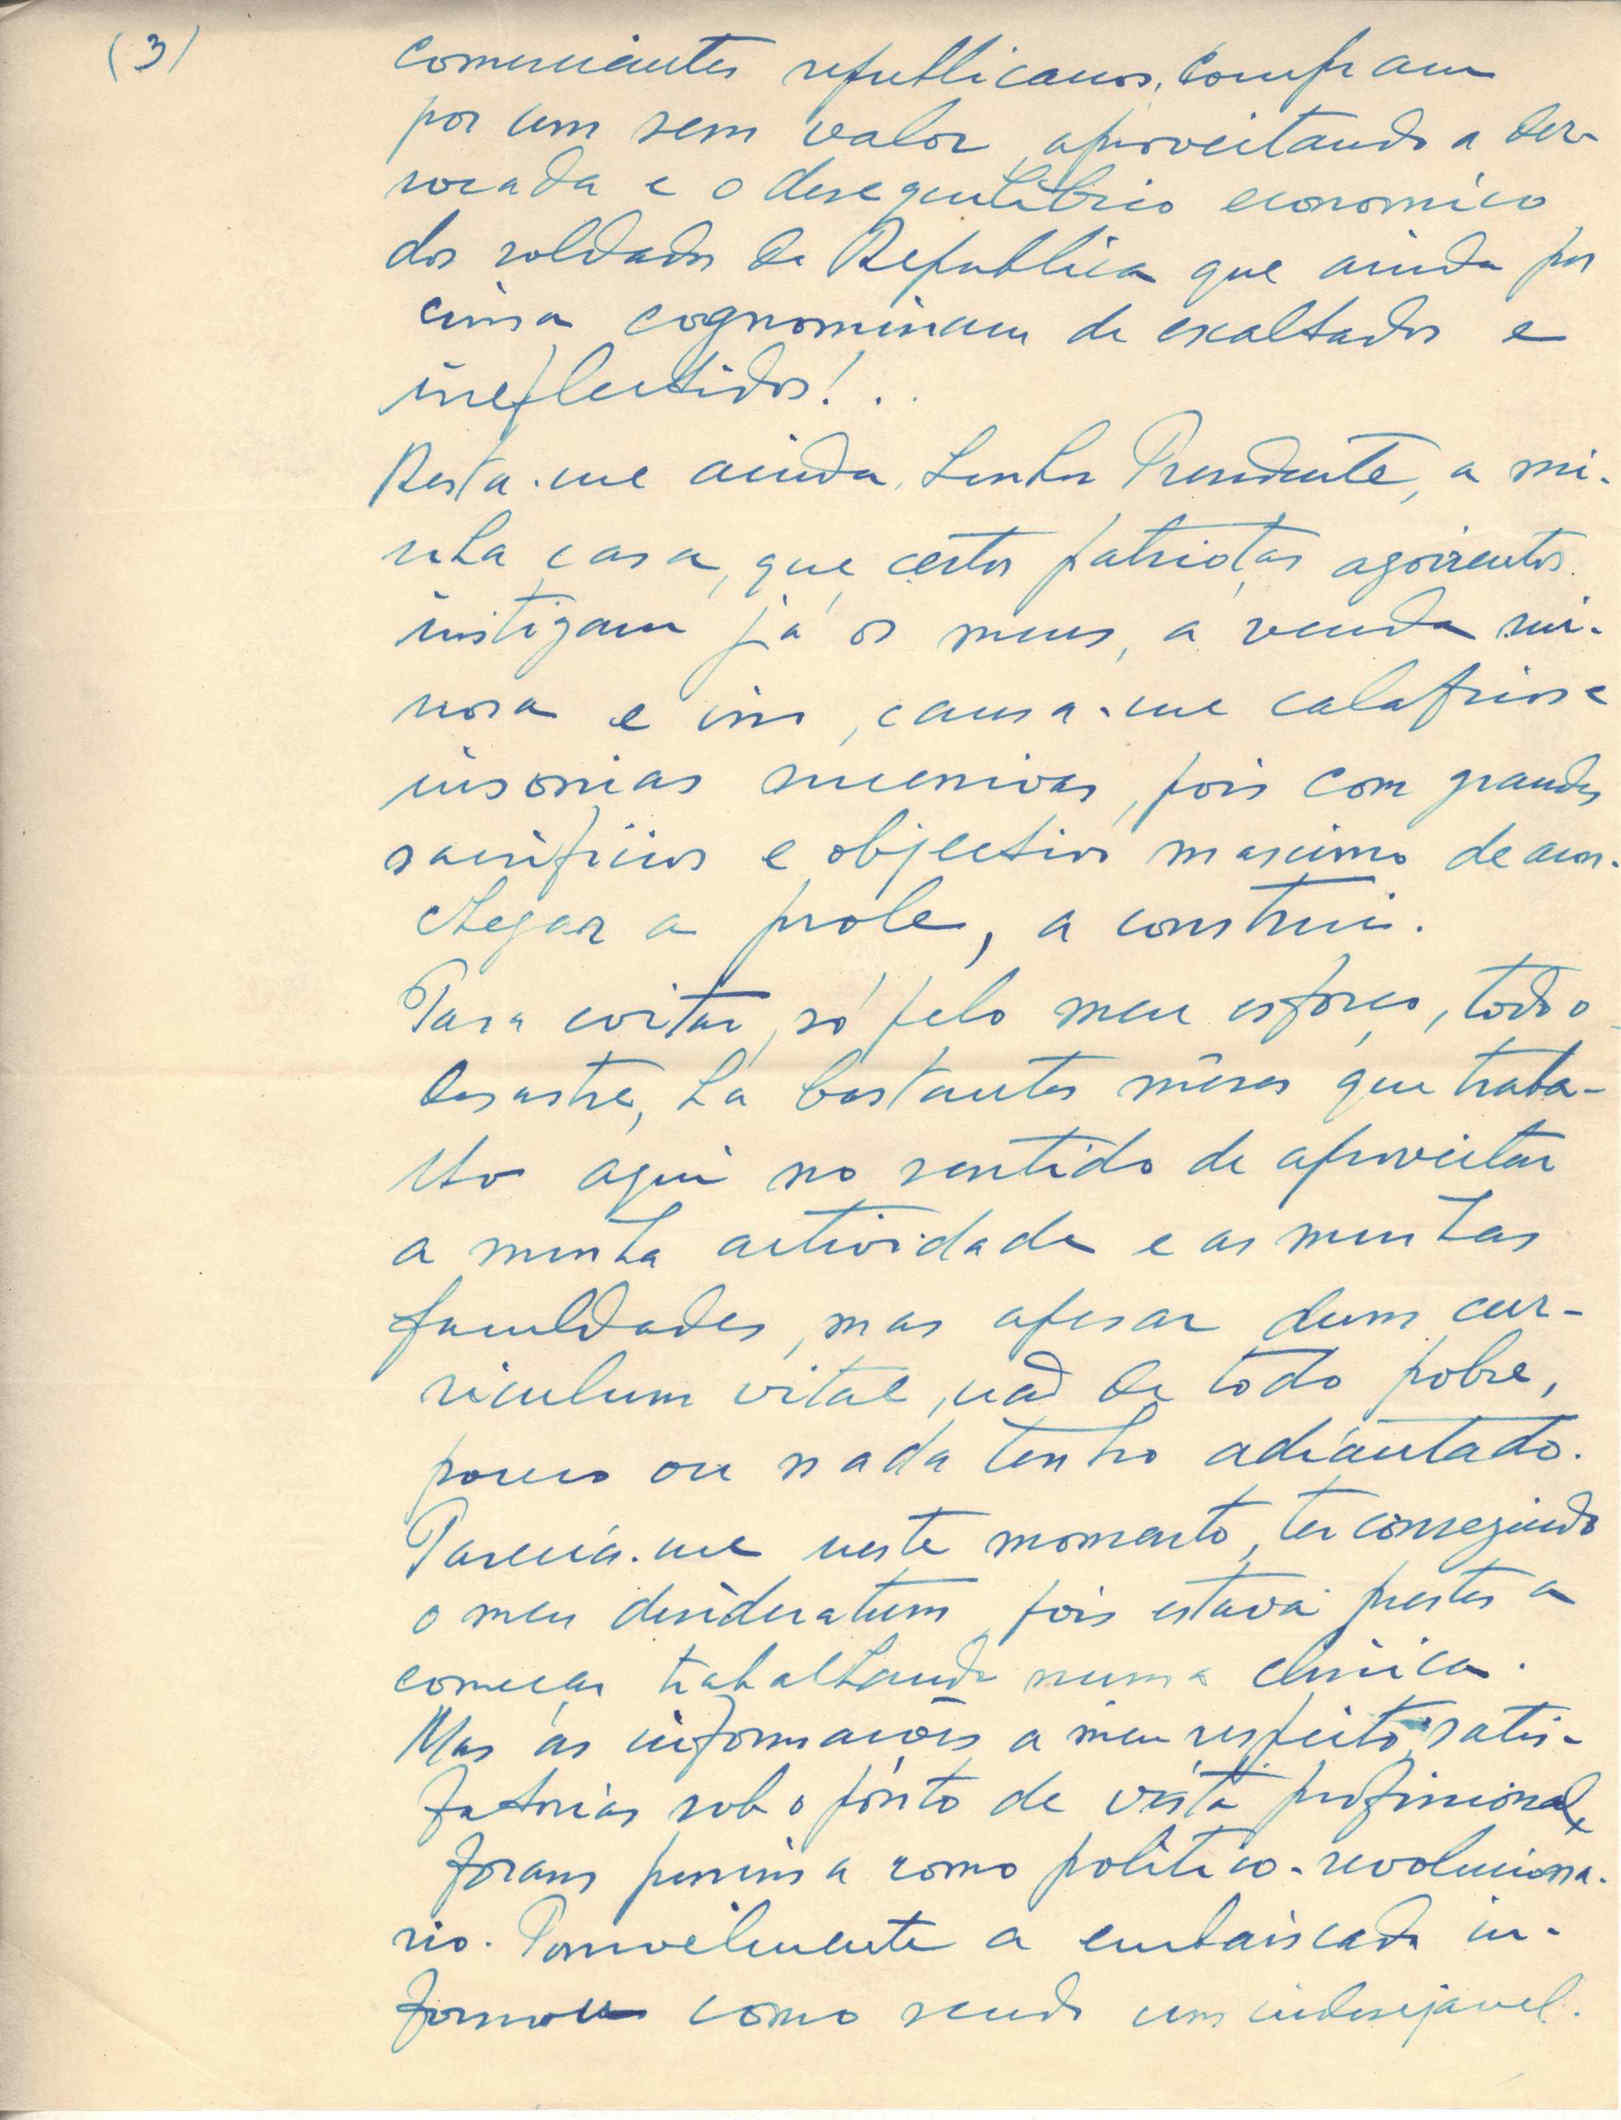 (3)
comerciantes republicanos, compram
por um sem valor, aproveitando a der-
rocada e o desequilibrio economico
dos soldados da Republica que ainda por
cima cognominam de exaltados e
irreflectidos!..
Resta-me ainda, Senhor Presidente, a mi-
nha casa, que, certos patriotas agoirentos
instigam já os meus, a venda rui-
nosa e isso, causa-me calafrios e
insonias sucessivas, pois com grandes
sacrificios e objectivo maximo de acon-
chegar a prole, a construi.
Para evitar, só pelo meu esforço, todo o
desastre, ha bastantes mêses que traba-
lho aqui no sentido de aproveitar
a minha actividade e as minhas
faculdades, mas apesar dum cur-
riculum vitae, não de todo pobre,
pouco ou nada tenho adiantado.
Parecia-me neste momento, ter conseguido
o meu desideratum, pois estava prestes a
começar trabalhando numa clinica.
Mas as informações a meu respeito, satis-
fatorias sob o ponto de vista profissional,
foram pessimas como politico-revoluciona-
rio. Possivelmente a embaixada in-
formou como sendo um indesejavel.